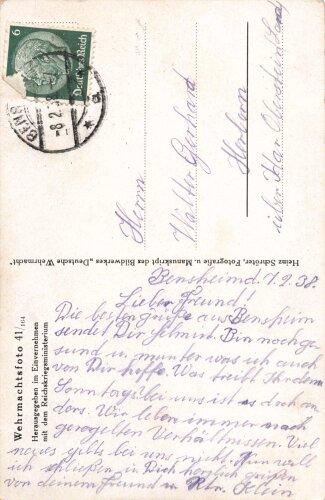 6
Deutsches Reich
BENS
-8.2.38
a
Herrn
Walter Gerhard
Herborn
über Idar Oberstein Land
Heinz Schröter, Fotografie u. Manuskript des Bildwerkes „Deutsche Wehrmacht"
Wehrmachtsfoto 41/164
Herausgegeben im Einvernehmen
mit dem Reichskriegsministerium
Bensheim d. 7.2.38.
Lieber Freund!
Die besten grüße aus Bensheim
sendet Dir Helmut. Bin noch ge-
sund u. munter was ich auch
von Dir hoffe. Was treibt Ihr denn
Sonntags bei uns ist es doch an
ders. Wir leben immer noch
geregelten Verhältnissen. Viel
neues gibts bei uns nicht. Nun will
ich schließen, in Dich herzlich grüßen
von deinem Freund u.